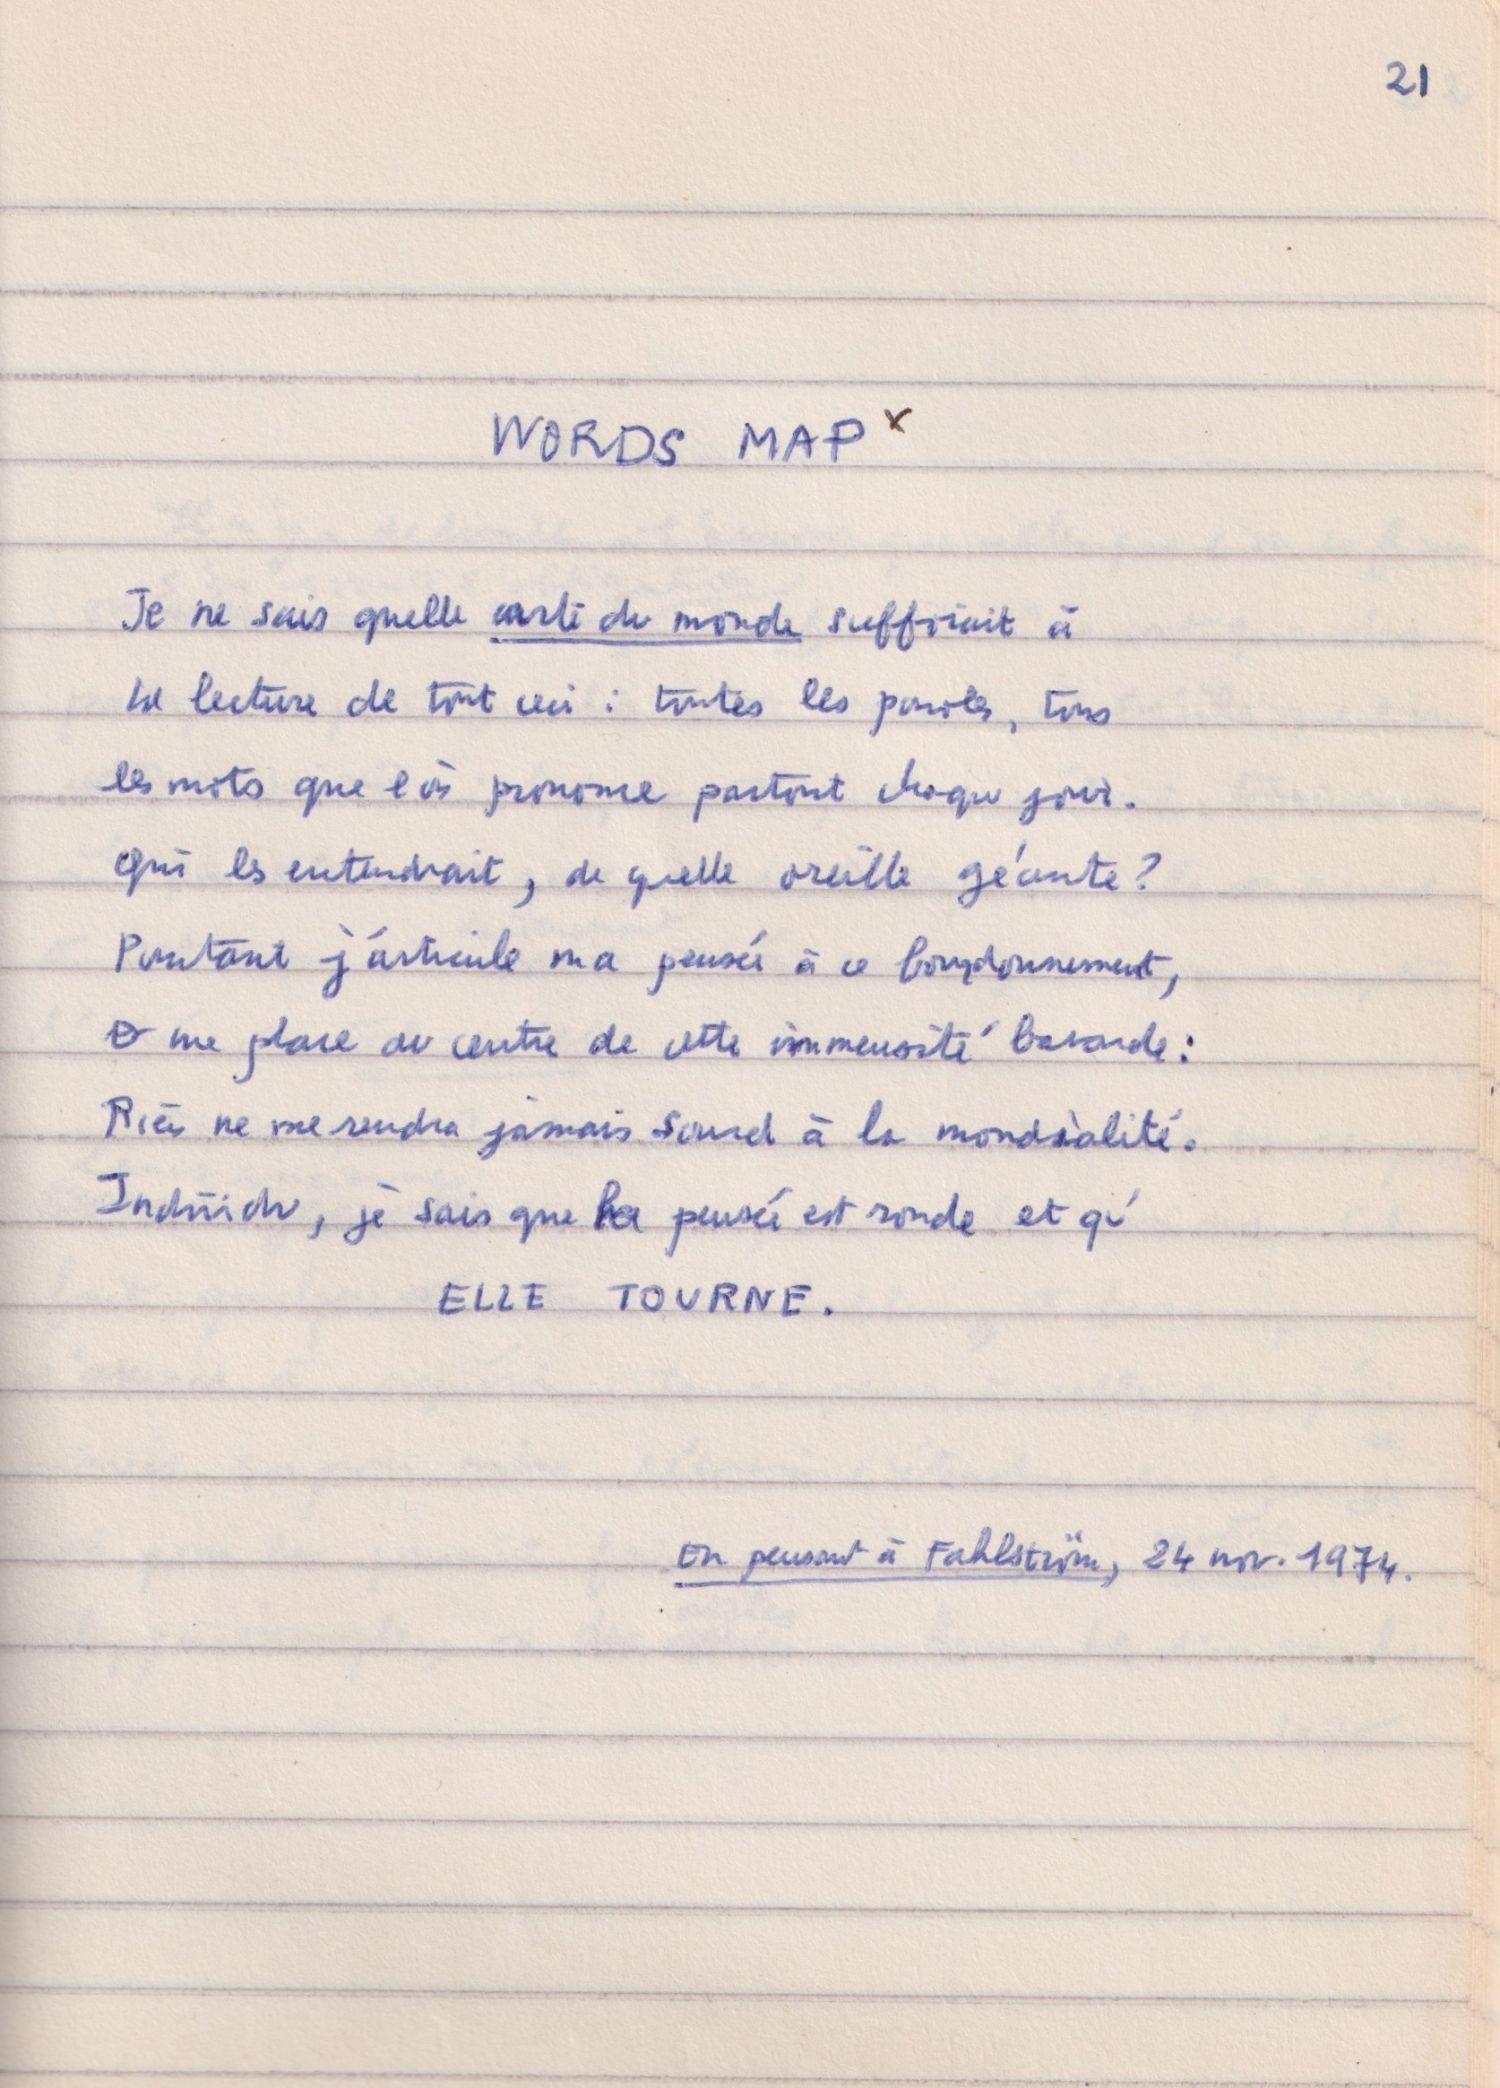 21
WORDS MAP x
Je ne sais quelle carte du monde suffirait à
la lecture de tout ceci : toutes les paroles, tous
les mots que l'on prononce partout chaque jour.
Qui les entendrait, de quelle oreille géante ?
Pourtant j'articule ma pensée à ce bourdonnement,
& me place au centre de cette immensité bavarde :
Rien ne me rendra jamais sourd à la mondialité.
Individu, je sais que la pensée est ronde et qu'
ELLE TOURNE.
En pensant à Fahlström, 24 nov. 1974.